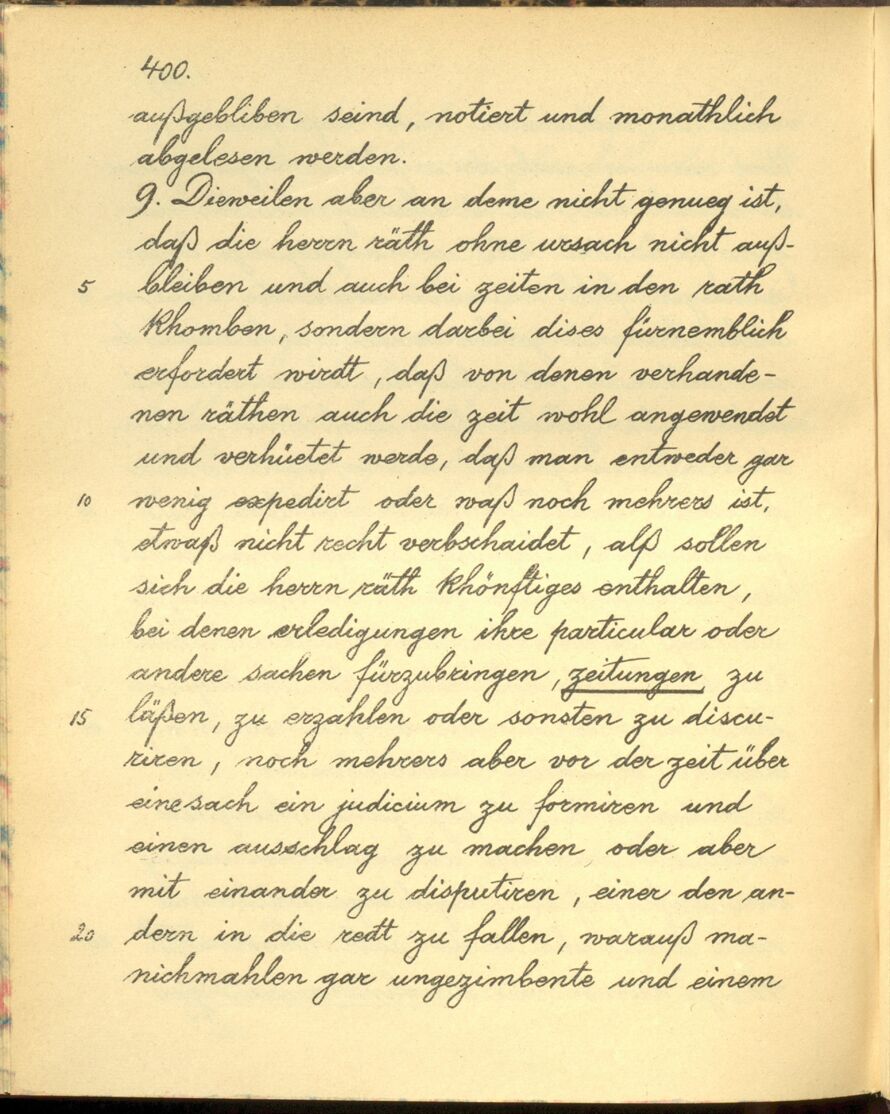 400.
außgebliben seind, notiert und monathlich
abgelesen werden.
9. Dieweilen aber an deme nicht genueg ist,
daß die herrn räth ohne ursach nicht auß-
5 bleiben und auch bei zeiten in den rath
khomben, sondern darbei dises fürnemblich
erfordert wirdt, daß von denen verhande-
nen räthen auch die zeit wohl angewendet
und verhüetet werde, daß man entweder gar
10 wenig expedirt oder waß noch mehrers ist,
etwaß nicht recht verbschaidet, alß sollen
sich die herrn räth khönftiges enthalten,
bei denen erledigungen ihre particular oder
andere sachen fürzubringen, zeitungen zu
15 läßen, zu erzahlen oder sonsten zu discu-
riren, noch mehrers aber vor der zeit über
eine sach ein judicium zu formiren und
einen ausschlag zu machen oder aber
mit einander zu disputiren, einer den an-
20 dern in die redt zu fallen, warauß ma-
nichmahlen gar ungezimbente und einem